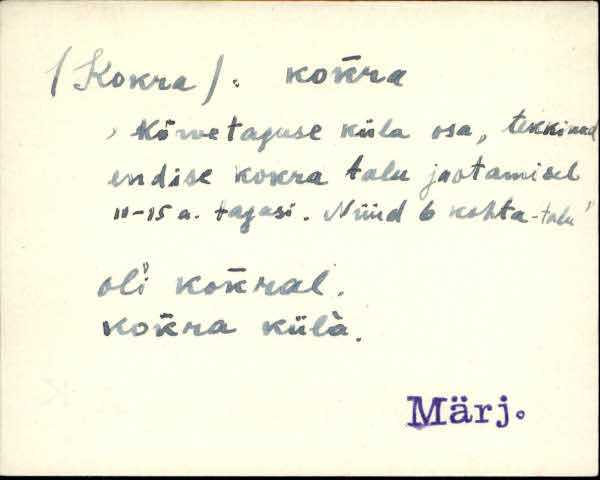 (Kokra). kok̄ra
, Kõrvetaguse küla osa, tekkinud
endise kokra talu jaotamisel
11-15 a. tagasi. Nüüd 6 kohta-talu"
oli̬ kok̄ral.
kok̄ra külà.
Märj.